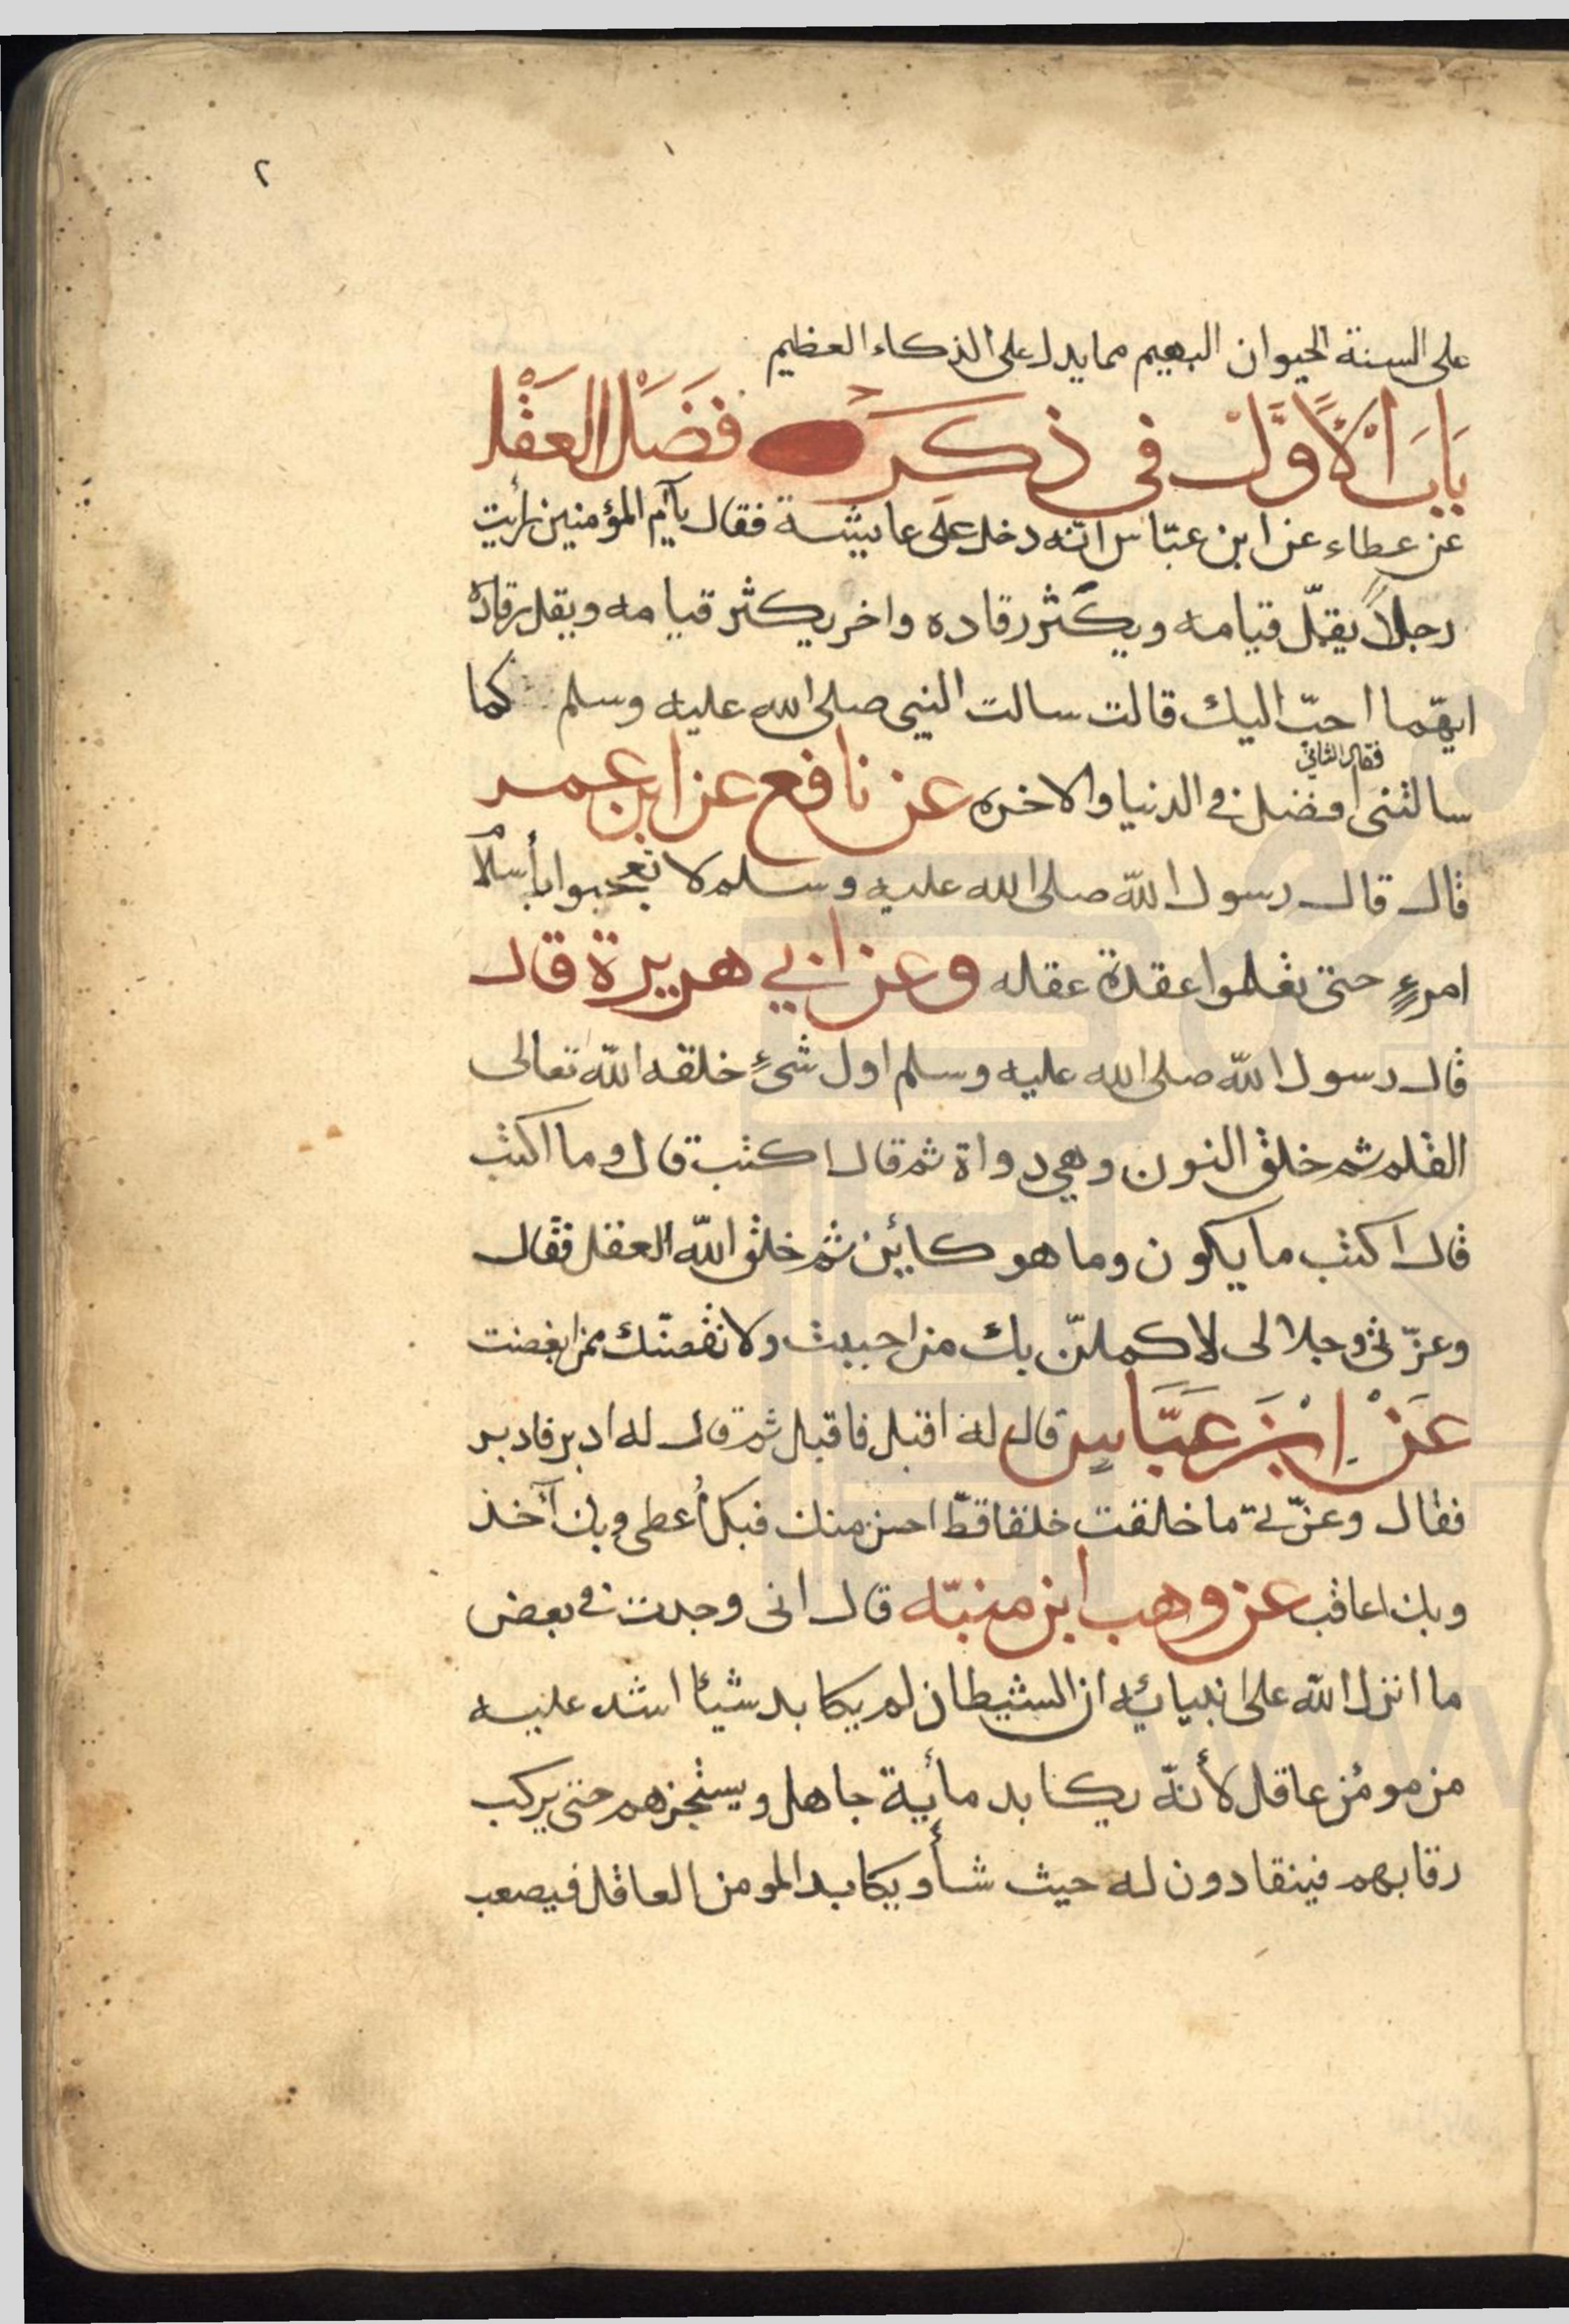 ٢
على السنة الحيوان البهيم مما يدل على الذكاء العظيم
بَابَ الْأَوَّلْ في ذكَر فَضَلْ العَقْل
عن عطاء عن ابن عبّاس انّه دخل على عايشة فقال يآم المؤمنين رأيت
رجلاً يقلّ قيامه ويكثر رقاده واخر يكثر قيامه ويقل رقاده
ايهّما احبّ اليك قالت سالت النبي صلى الله عليه وسلم كما
فقال الثاني
سالتنى افضل في الدنيا والاخره عن نافع عن ابن عمر
قال قال رسول الله صلى الله عليه وسلم لا تعجبوا بأسلام
امرءٍ حتى تعلموا عقدة عقله وعن ابي هريرة قال
قال رسول الله صلى الله عليه وسلم اول شئٍ خلقه الله تعالى
القلم ثم خلق النون وهي دواة ثم قال اكتب قال وما اكتب
قال اكتب ما يكون وما هو كايئن ثم خلق الله العقل فقال
وعزّتي وجلالى لاكملنّ بك من احببت ولانقصنّك ممن ابغضت
عَنْ اِبْنَ عَبَّاسٍ قال له اقبل فاقبل ثم قال له ادبر فادبر
فقال وعزّتي ما خلقت خلقا قطّ احسن منك فبك أُعطى وبك آخذ
وبك اعاقب عن وهب ابن منبّه قال انى وجدت في بعض
ما انزل الله على انبيائه ان الشيطان لم يكابد شيئا اشد عليه
من مومُن عاقل لأنّه يكابد مأية جاهل ويستجرهم حتى يركب
رقابهم فينقادون له حيث شأ ويكابد المومن العاقل فيصعب